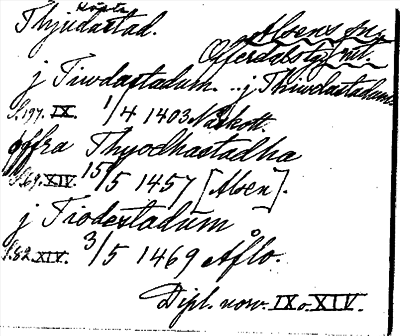 Högsta
Thjudastad. Alsens sn.
Offerdals tg, Jmt.
j Tiwdastadum. .. j Thiwdastadum.
S. 197. IX. 1/4 1403 Näskott.
øffra Thyodhastadha
S. 69. XIV. 15/5 1457 [Alsen].
j Tiodestadum
S. 82. XIV. 3/5 1469 Aflo.
Dipl. norv. IX o. XIV.